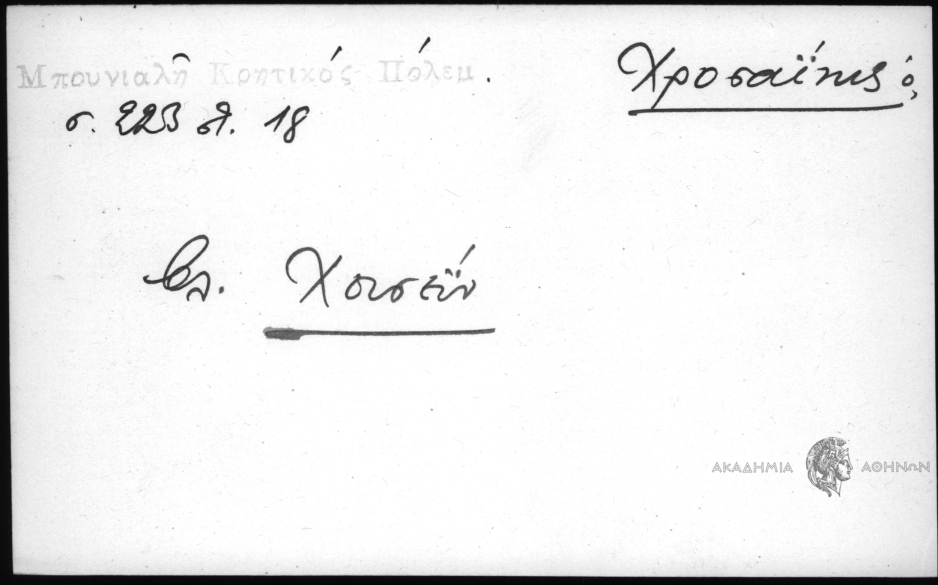 Μπουνιαλῆ Κρητικός Πόλεμ.
Χροσαΐτης ὁ,
σ. 223 στ. 18
βλ. Χουσεῒν
ΑΚΑΔΗΜΙΑ ΑΘΗΝΩΝ